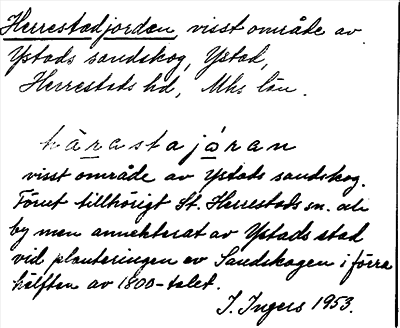 Herrestadjorden, visst område av
Ystads sandskog, Ystad,
Herrestads hd, Mhs län.
härastajóran
visst område av Ystads sandskog.
Förut tillhörigt St. Herrestads sn. och
by men annekterat av Ystads stad
vid planteringen av Sandskogen i förra
hälften av 1800-talet.
I. Ingers 1953.